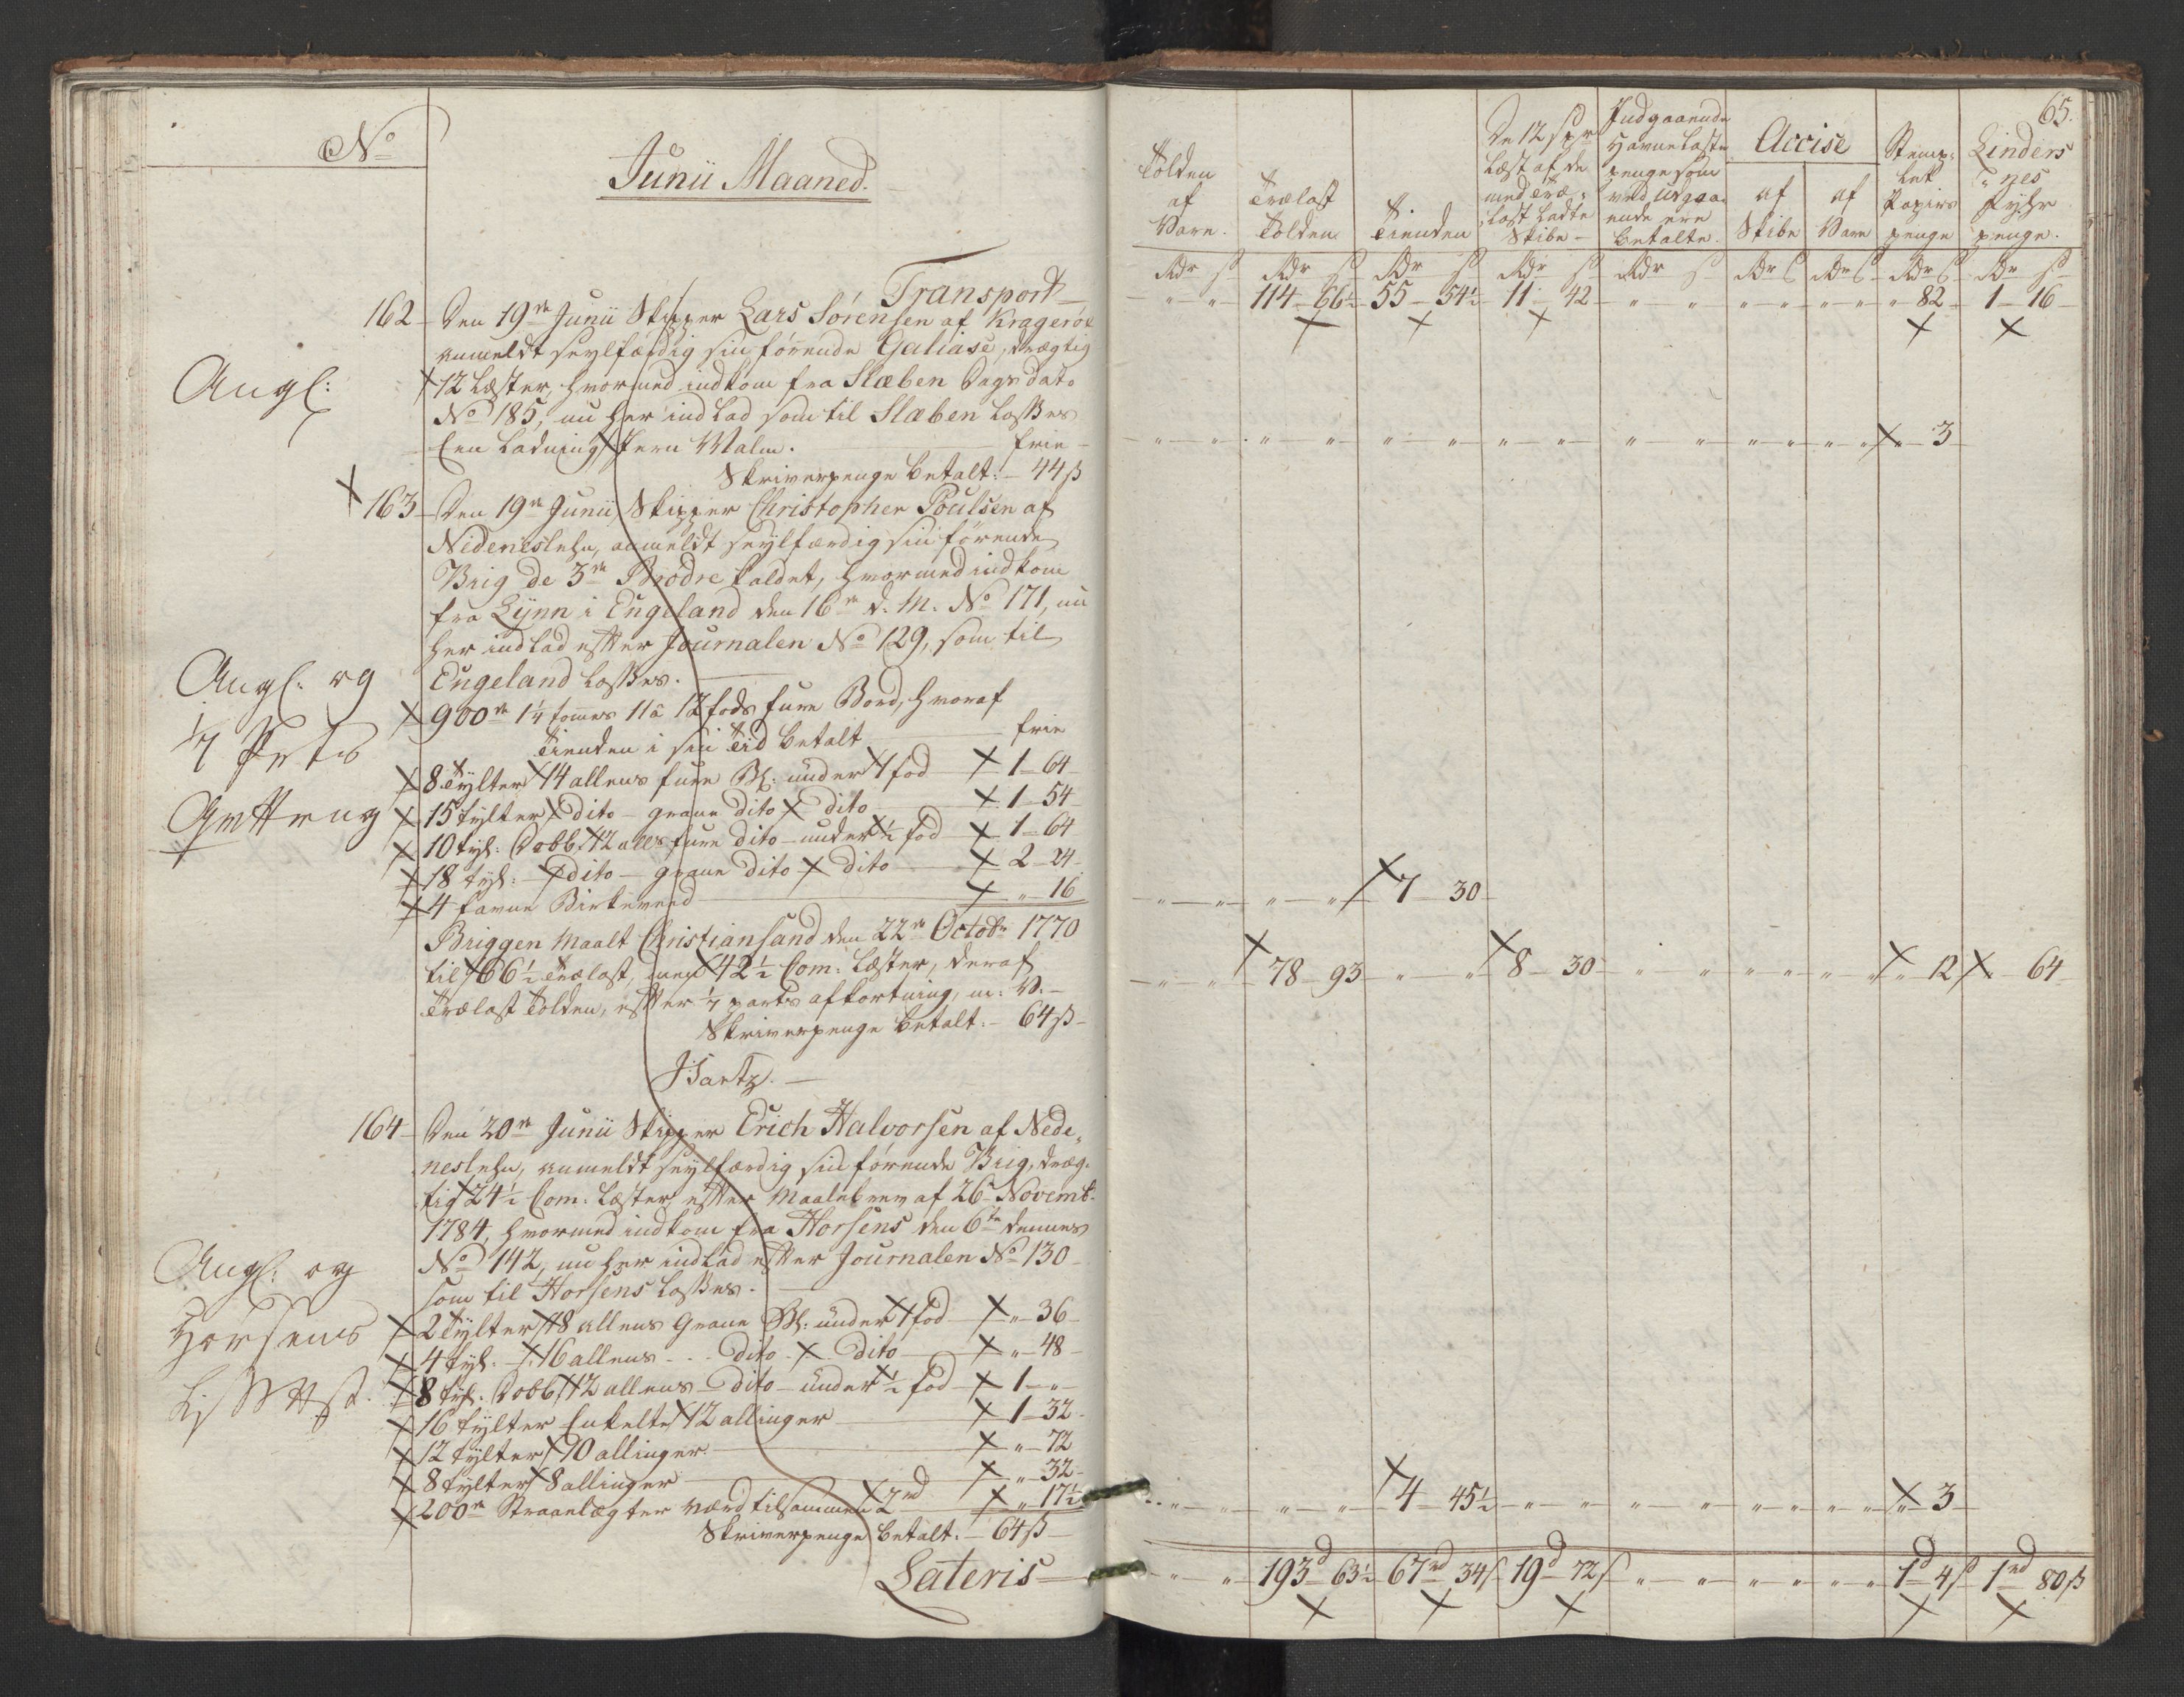 No
Junii Maaned.
Transport
162 Den 19de Junii Skipper Lars Sörensen af Kragerøe
anmeldt seylfærdig sin förende Galiase, drægtig
12 Læster, hvormed indkom fra Slæben Dags dato
No 185, nu her indlad som til Slæben losses
Een Ladning Jern Malm. frie
Skriverpenge betalt: 44 s
Angl:
163 Den 19de Junii Skipper Christopher Poulsen af
Nideneslehn, anmeldt seylfærdig sin förende
Brig de 3de Brödre kaldet, hvormed indkom
fra Lÿnn i Engeland den 16de d. M. No 171, nu
her indlad efter Journalen No 129, som til
Engeland losses.
Angl: og
900de 1¼ tommes 11 a 12 fods fure Bord, hvoraf
Tienden i sin Tid betalt frie
8 Tylter 14 allens fure Bl: under 1 fod 1 - 64
15 tylter dito - grane dito dito 1 - 54
10 tyl: Dobb: 12 alls fure dito - under ½ fod 1 - 64
18 tyl: dito - grane dito dito 2 - 24
4 favne Birkeveed " - 16
Briggen Maalt Christiansand den 22de Octobr 1770
til 66½ Trælast, men 42½ Com: Læster, deraf
Trælast Tolden, efter 1/7 parts afkortning, m: V.
Skriverpenge betalt. - 64 s
164 Den 20de Junii Skipper Erich Halvorsen af Nede„
neslehn, anmeldt seylfærdig sin förende Brig, dræg„
tig 24½ Com. Læster efter Maalebrev af 26 Novemb.
1784, hvormed indkom fra Horsens den 6te dennes
No 142, nu her indlad efter Journalen No 130
som til Horsens losses.
Angl: og
Horsens
2 Tylter 18 allens Grane Bl: under 1 fod " - 36
4 tyl. 16 allens dito dito " - 48
8 tyl. Dobb: 12 allens dito - under ½ fod 1 - "
16 tylter Enkelte 12 allinger 1 - 32
12 tylter 10 allinger " - 72
8 tylter 8 allinger " - 32
200de Straælægter værd tilsammen 2 rd " - 17½
Skriverpenge betalt. - 64 s
Lateris
65.
Tolden af Vare.
Trælast Tolden
Tienden
De 12 s pr Læst af de med Træ„ last ladte Skibe
Indgaaende Havne Laste penge som ved Udgaa„ ende ere betalte.
Accise
af Skibe
af Vare
Stemp: let Papirs penge
Linders „nes Fyhr penge.
Rdr s Rdr s Rdr s Rdr s Rdr s Rdr s Rdr s Rdr s Rdr s
" " 114 - 66½ 55 - 54½ 11 - 42 " " " " " " " 82 1 - 16
" " " " " " " " " " " " " " " 3
" " " " 7 - 30
" " 78 - 93 " " 8 - 30 " " " " " " " 12 " 64
" " " " 4 - 45½ " " " " " " " " " 3
" " 193d 63½ 67rd 34s 19d 72s " " " " " " 1d 4s 1rd 80s